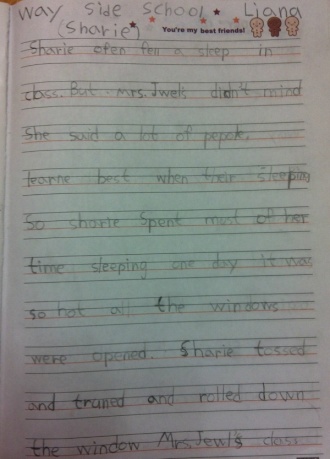 way side school Liana
(Sharie) You're my best friends!
Sharie ofen fell a sleep in
class. But. Mrs. Jwel's didn't mind
she said a lot of pepole.
learne best when their sleeping
So sharie spent most of her
time sleeping one day it was
so hot all the windows
were opened. Sharie tossed
and truned and rolled down
the window Mrs. Jewl's class